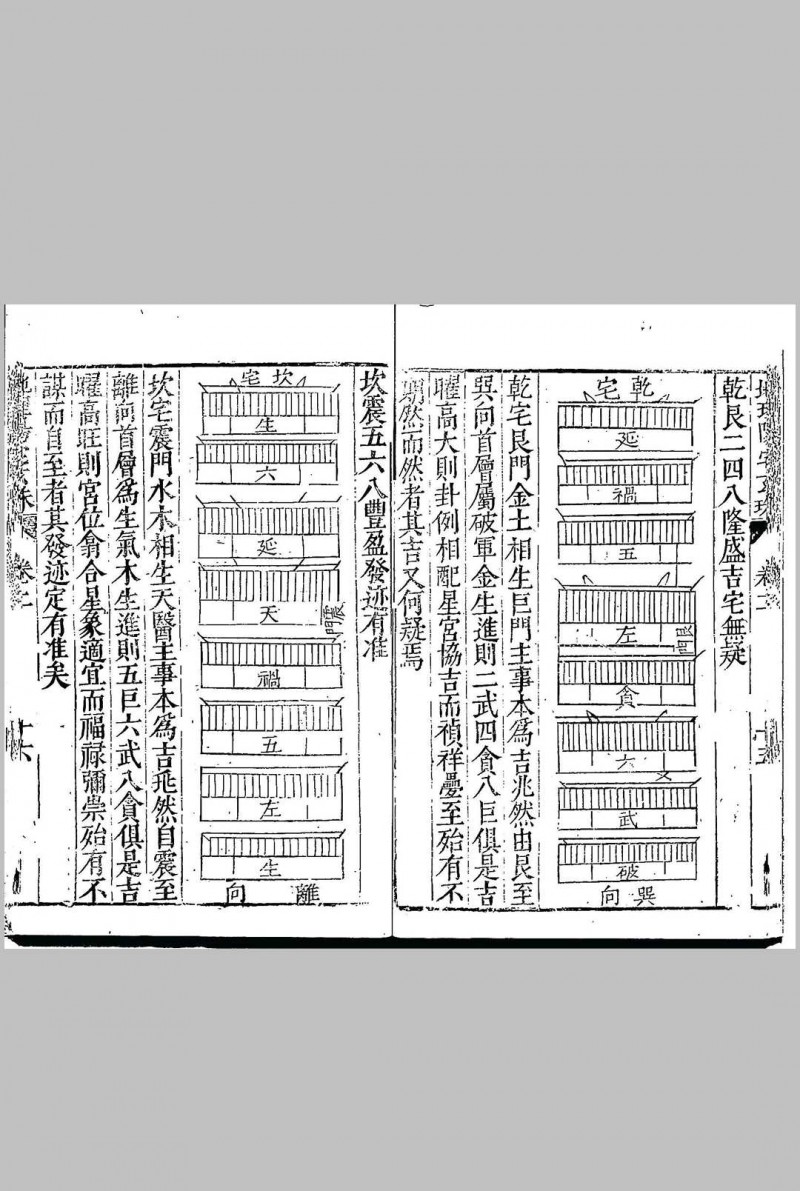 卷二
乾艮二四八隆盛吉宅無疑
乾宅
延
禍
五
左
艮門
貪
六
武
破
巽向
乾宅艮門金土相生巨門主事本為吉兆然由艮至
巽向首層屬破軍金生進則二武四貪八巨俱是吉
曜高大則卦例相配星宮協吉而禎祥疊至殆有不
期然而然者其吉又何疑焉
坎震五六八豐盈發迹有准
坎宅
生
六
延
天
震門
禍
五
左
生
離向
坎宅震門水木相生天醫主事本為吉兆然自震至
離向首層為生氣木生進則五巨六武八貪俱是吉
曜高旺則宮位翕合星象適宜而福祿彌崇殆有不
謀而自至者其發迹定有准矣